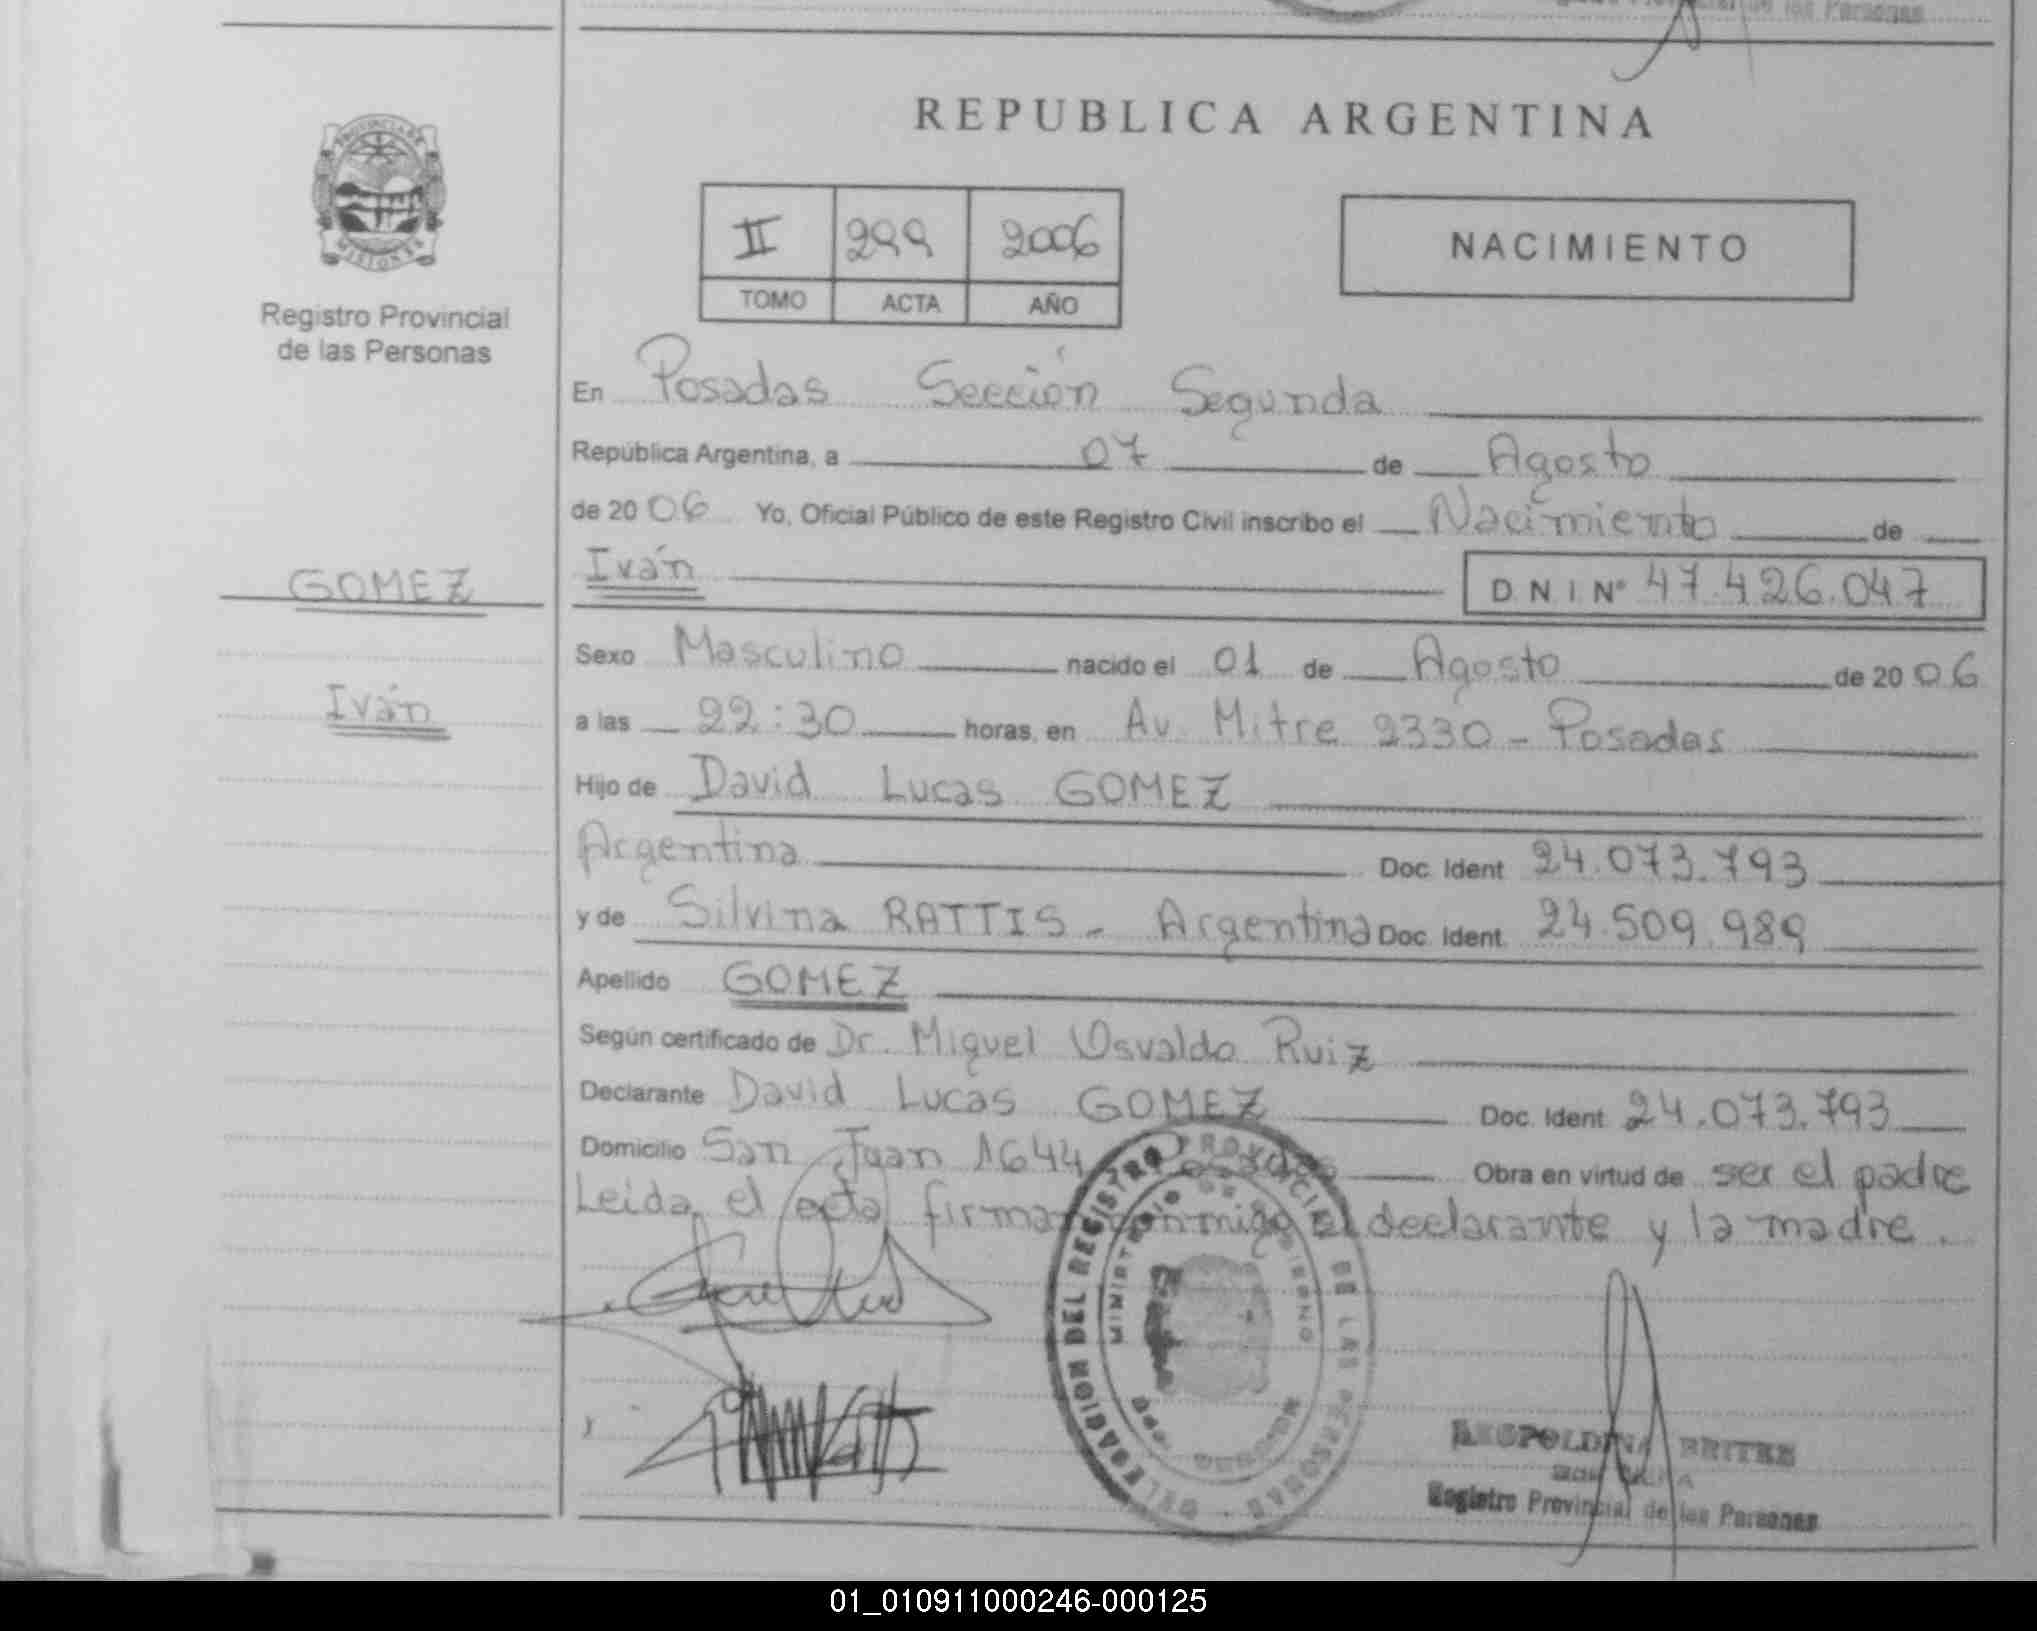 de las Personas
REPUBLICA ARGENTINA
PROVINCIA DE
MISIONES
Registro Provincial
de las Personas
II 299 2006
TOMO ACTA AÑO
NACIMIENTO
En Posadas Sección Segunda
República Argentina, a 07 de Agosto
de 20 06 Yo, Oficial Público de este Registro Civil inscribo el Nacimiento de
GOMEZ
Iván
Iván D N I Nº 47.426.047
Sexo Masculino nacido el 01 de Agosto de 20 06
a las 22:30 horas, en Av. Mitre 2330 - Posadas
Hijo de David Lucas GOMEZ
Argentina Doc. Ident 24.073.793
y de Silvina RATTIS - Argentina Doc. Ident. 24.509.989
Apellido GOMEZ
Según certificado de Dr. Miguel Osvaldo Ruiz
Declarante David Lucas GOMEZ Doc. Ident. 24.073.793
Domicilio San Juan 1644 Posadas Obra en virtud de ser el padre
Leida el acta firman conmigo el declarante y la madre.
DELEGACION DEL REGISTRO PROVINCIAL DE LAS PERSONAS
MINISTERIO DE GOBIERNO
LEOPOLDINA BRITEZ
Registro Provincial de las Personas
01_010911000246-000125